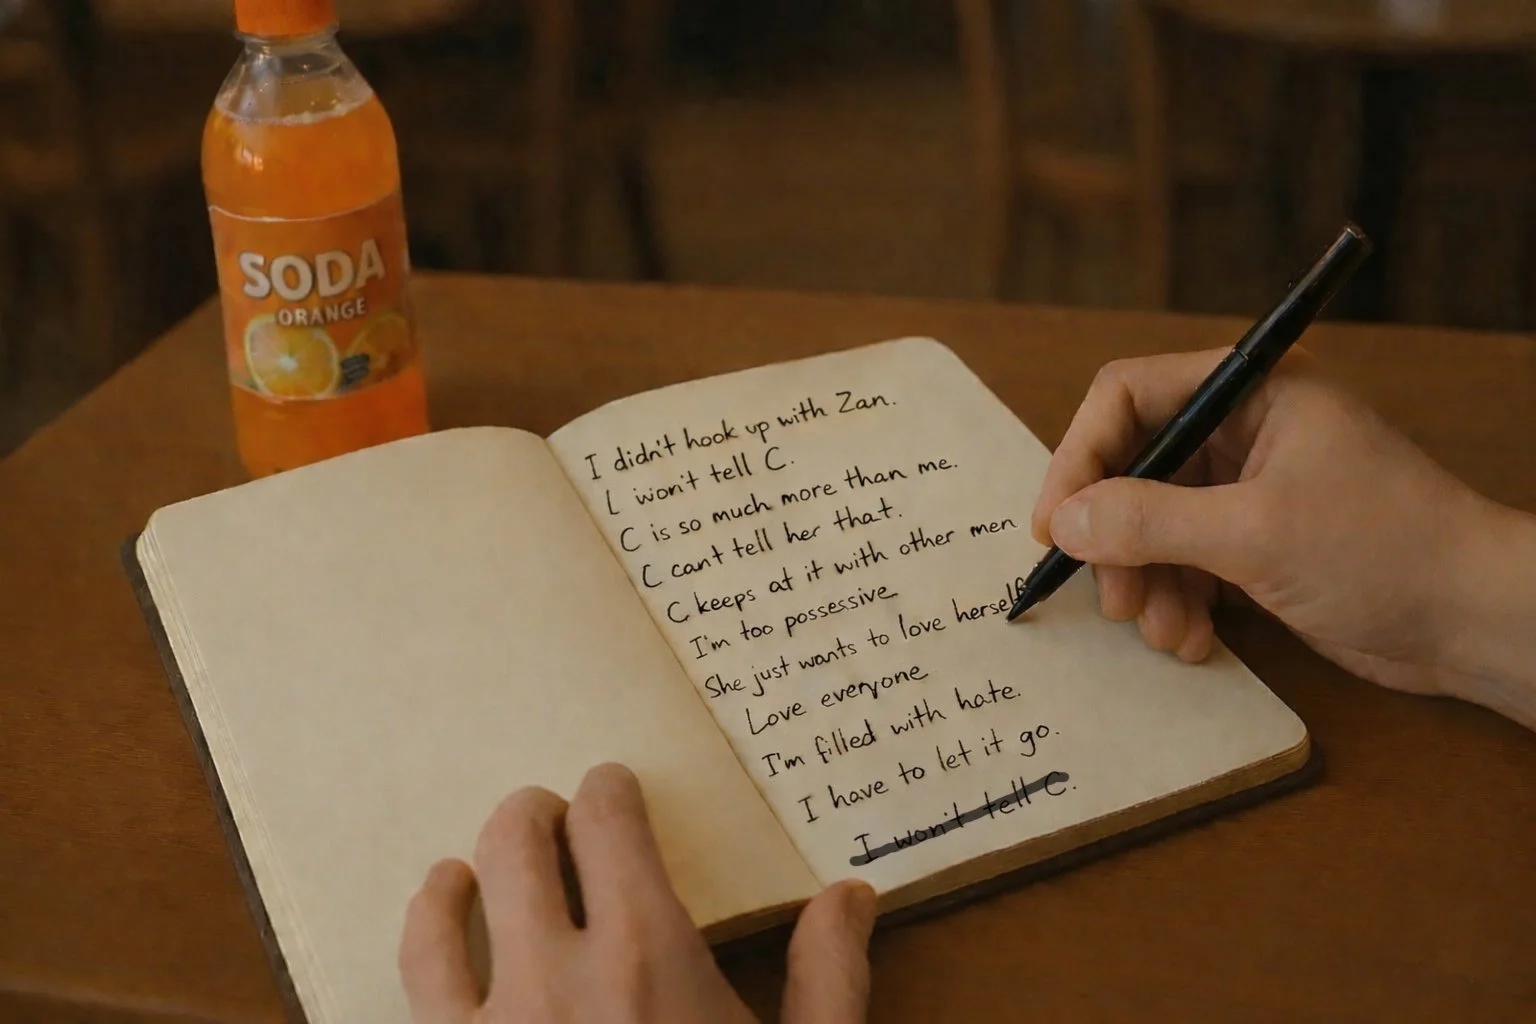 SODA
ORANGE
I didn't hook up with Zan.
I won't tell C.
C is so much more than me.
C can't tell her that.
C keeps at it with other men
I'm too possessive
She just wants to love herself
Love everyone
I'm filled with hate.
I have to let it go.
I won't tell C.